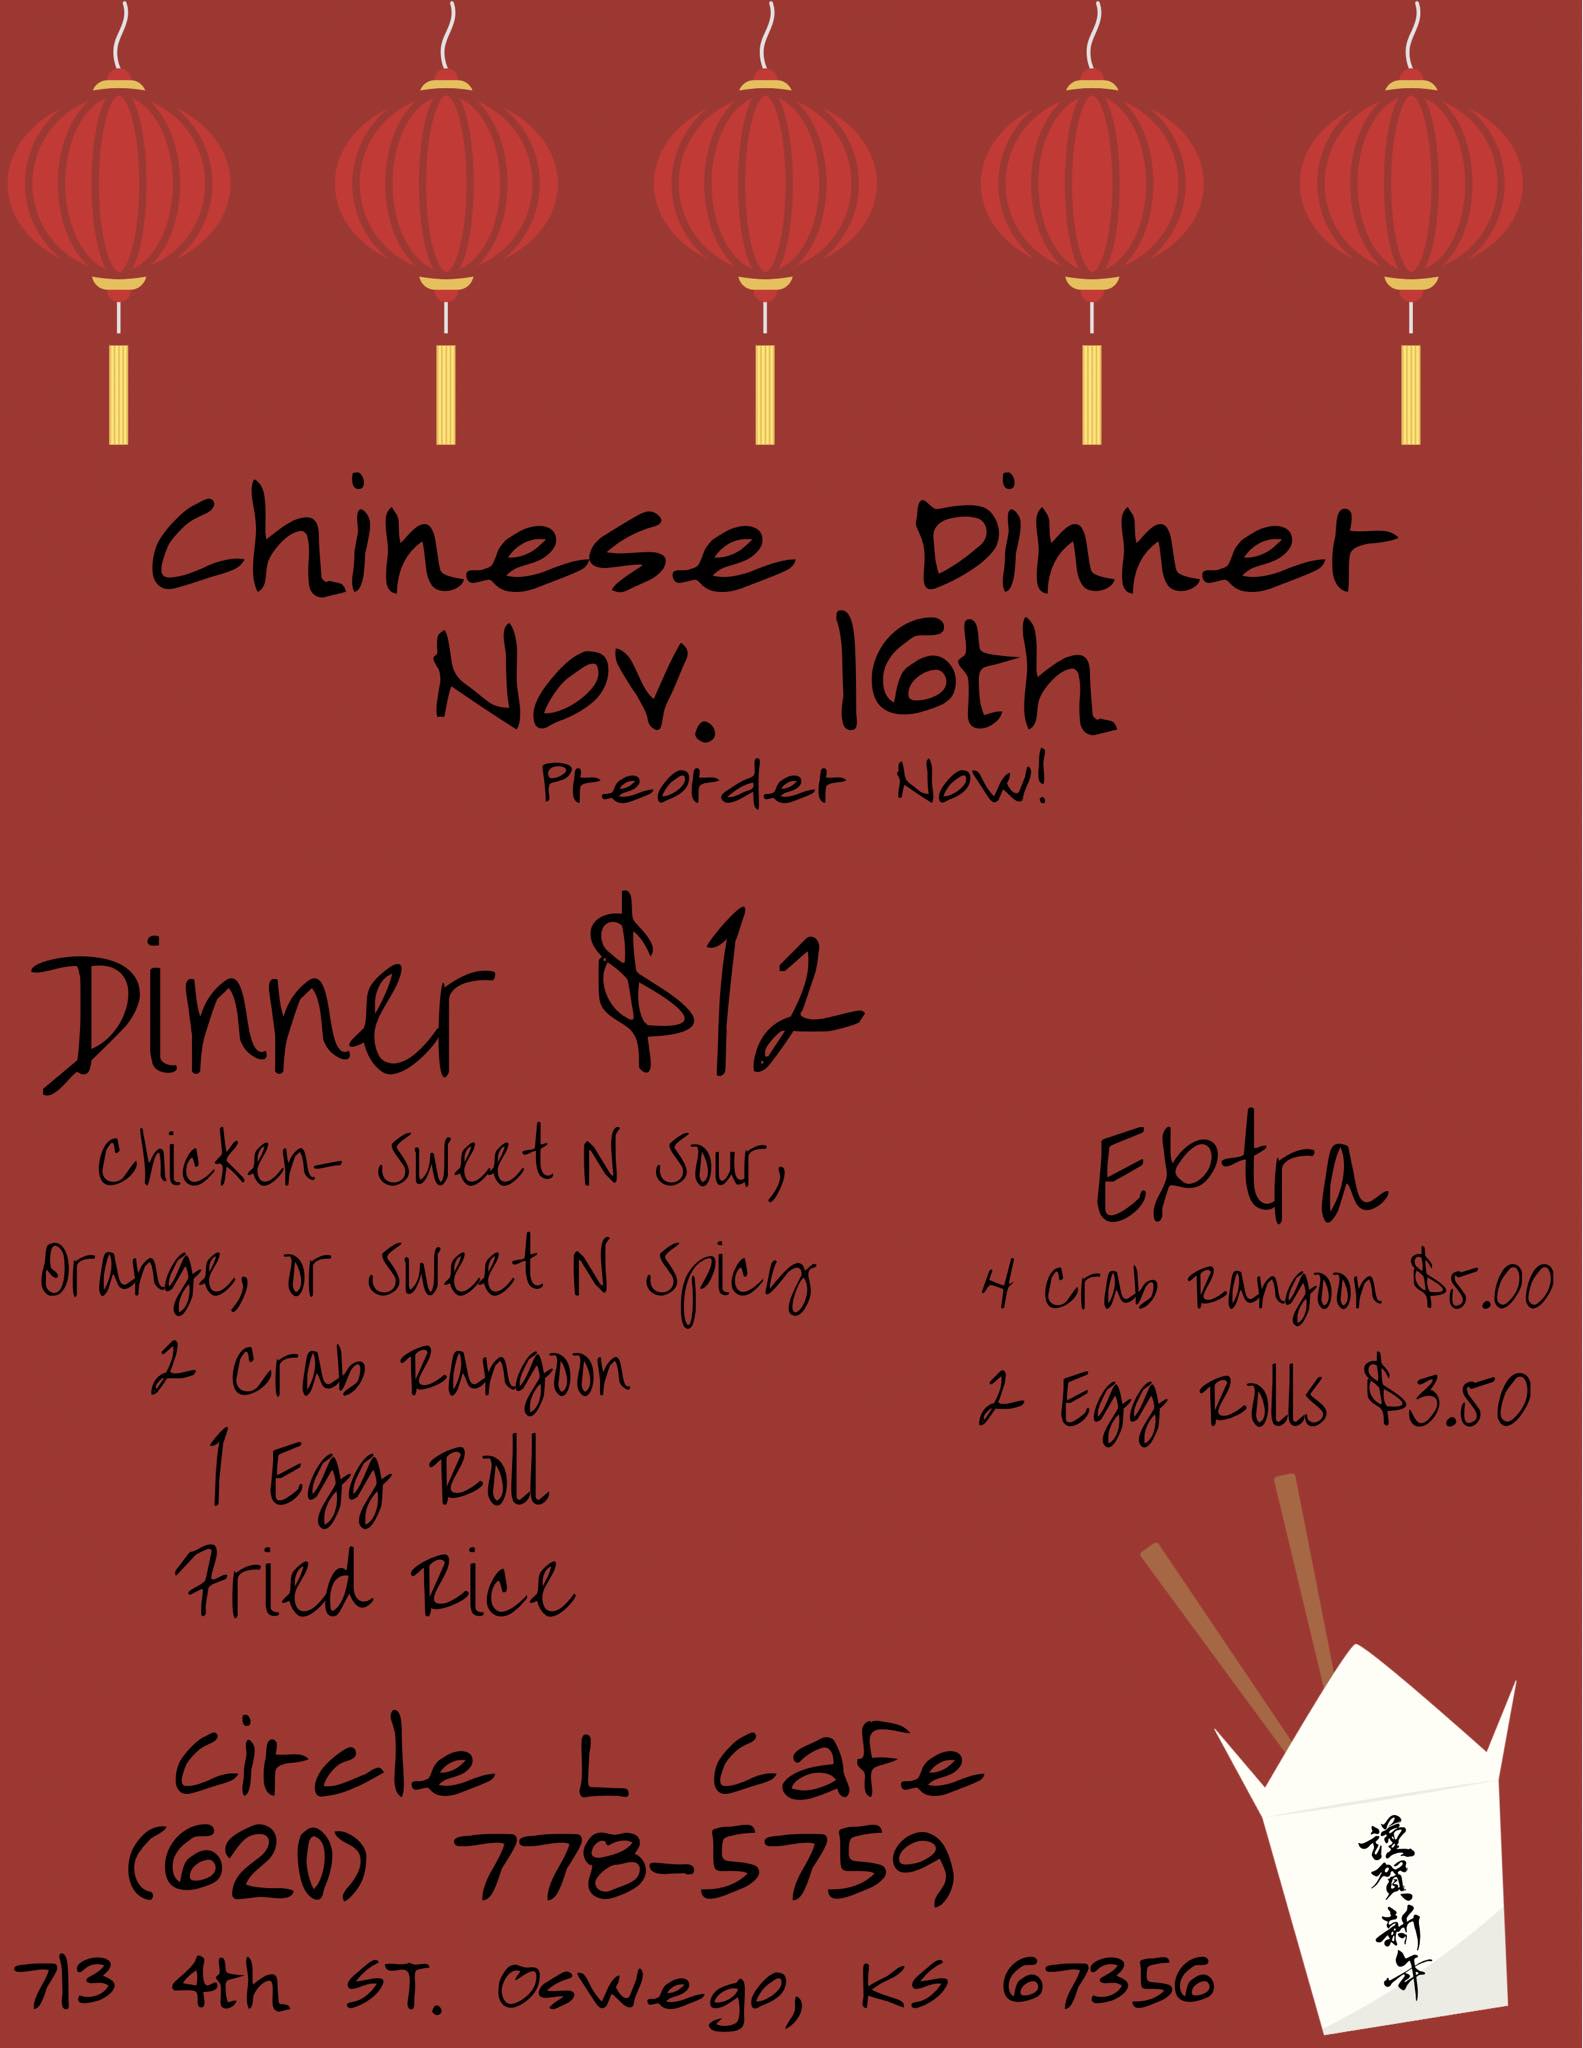 Chinese Dinner
Nov. 16th
Preorder Now!
Dinner $12
Chicken- Sweet N Sour,
Orange, or Sweet N Spicy
2 Crab Rangoon
1 Egg Roll
Fried Rice
Extra
4 Crab Rangoon $5.00
2 Egg Rolls $3.50
Circle L Cafe
(620) 778-5759
713 4th ST. Oswego, KS 67356
謹賀新年